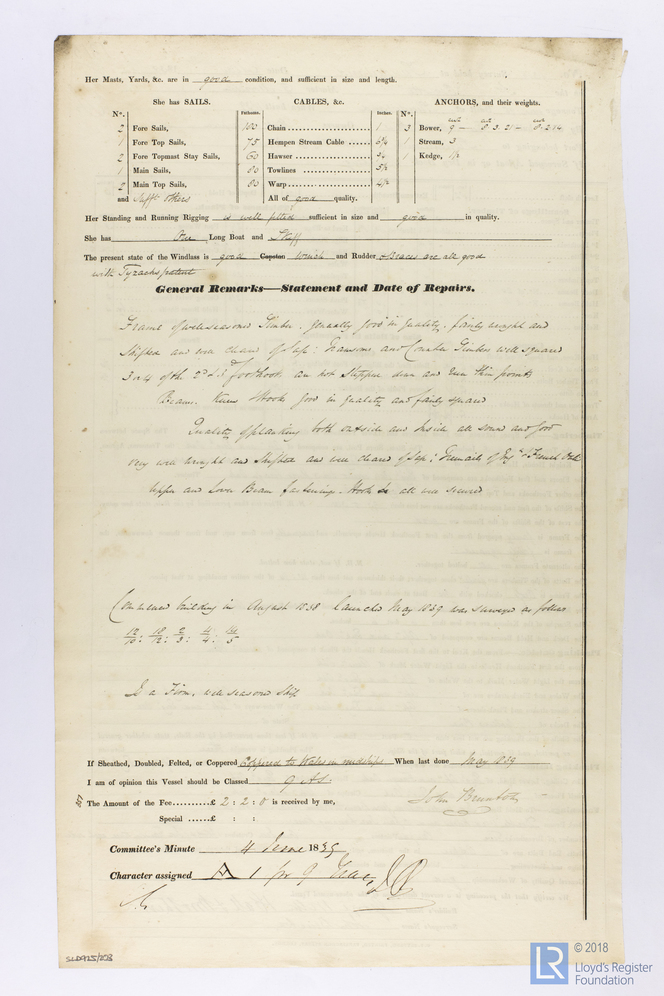 Her Masts, Yards, &c. are in good condition, and sufficient in size and length.
She has SAILS.
CABLES, &c.
ANCHORS, and their weights.
No.
Fathoms.
Inches.
No.
2 Fore Sails,
100 Chain 1
3 Bower,
1 Fore Top Sails,
75 Hempen Stream Cable
1 Stream, 3
2 Fore Topmast Stay Sails,
60 Hawser
1 Kedge, 1/2
1 Main Sails,
80 Towlines
2 Main Top Sails,
80 Warp
and Sufft others
All of good quality.
Her Standing and Running Rigging is well fitted sufficient in size and good in quality.
She has One Long Boat and Skiff
The present state of the Windlass is good Capstan Winch and Rudder Braces are all good
with Tyzacks patent
General Remarks—Statement and Date of Repairs.
Frame of well seasoned Timber. generally good in quality. fairly wrought and
shifted and well cleared of sap: Transoms and Counter Timbers well squared
3 or 4 of the 2d & 3d foothook are not stepped down and even thin points
Beams. Knees Hook good in quality and fairly squared
Quality of planking both outside and inside all sound and good
very well wrought and shifted and well cleared of sap: Treenails of Eng. & French Oak
Upper and Lower Beam fastenings. Hook &c all well secured
Commenced building in August 1838 launched May 1839 was surveyed as follows
Is a Firm, well seasoned Ship
If Sheathed, Doubled, Felted, or Coppered Coppered to Wales in midships When last done May 1839
I am of opinion this Vessel should be Classed 9 A1.
The Amount of the Fee..........£ 2 : 2 : 0 is received by me,
John Brunton
Special ......£ : :
Committee's Minute 4 June 1839
Character assigned A 1 for 9 Years
SLD925/208
LR
© 2018
Lloyd's Register
Foundation